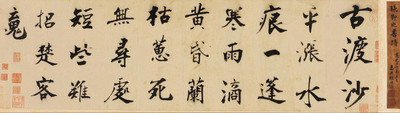 古渡沙
平漲水
痕一蓬
寒雨滴
黄昏蘭
枯蕙死
無尋處
短些難
招楚客
魂